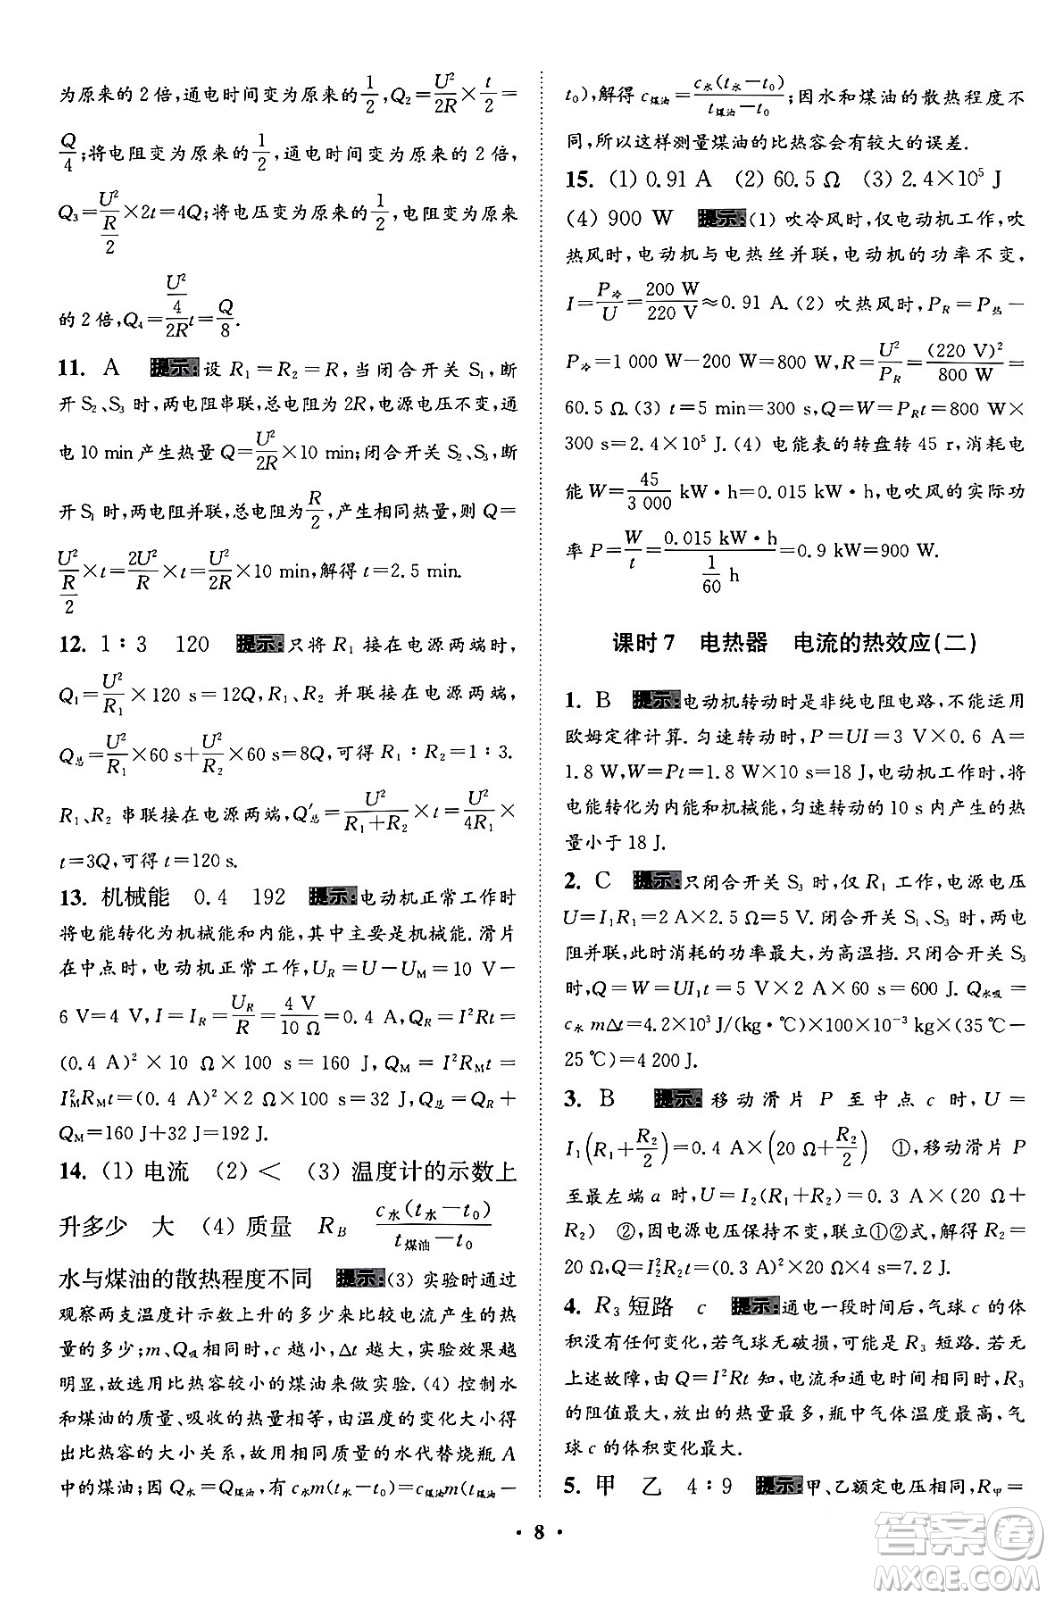 为原来的 2 倍,通电时间变为原来的 1/2, Q₂=U²/2R×t/2=
Q/4;将电阻变为原来的 1/2,通电时间变为原来的 2 倍,
Q₃=U²/(R/2)×2t=4Q;将电压变为原来的 1/2,电阻变为原来
的 2 倍,Q₄=(U²/4)/2R t=Q/8.
11. A 提示:设 R₁=R₂=R,只闭合开关 S₁,断
开 S₂、S₃ 时,两电阻串联,总电阻为 2R,电源电压不变,通
电 10 min 产生热量 Q=U²/2R t;只闭合开关 S₂、S₃,断
开 S₁ 时,两电阻并联,总电阻为 R/2,产生相同热量,则 Q=
U²/(R/2)×t=2U²/R×t=U²/2R×10 min,解得 t=2.5 min.
12. 1∶3 120 提示:只将 R₁ 接在电源两端时,
Q₁=U²/R₁×120 s=12Q,R₁、R₂ 并联接在电源两端,
Q总=U²/R₁×60 s+U²/R₂×60 s=8Q,可得 R₁∶R₂=1∶3.
R₁、R₂ 串联接在电源两端,Q′总=U²/(R₁+R₂)×t=U²/4R₁×
t=3Q,可得 t=120 s.
13. 机械能 0.4 192 提示:电动机正常工作时
将电能转化为机械能和内能,其中主要是机械能.滑片
在中点时,电动机正常工作,U_R=U-U_M=10 V-
6 V=4 V,I=I_R=U_R/R=4 V/10 Ω=0.4 A,Q_R=I²Rt=
(0.4 A)²×10 Ω×100 s=160 J,Q_M=I²R_Mt=
I²_MR_Mt=(0.4 A)²×2 Ω×100 s=32 J,Q总=Q_R+
Q_M=160 J+32 J=192 J.
14. (1) 电流 (2) < (3) 温度计的示数上
升多少 大 (4) 质量 R_B c水(t水-t₀)/(t煤油-t₀)
水与煤油的散热程度不同 提示:(3) 实验时通过
观察两支温度计示数上升的多少来比较电流产生的热
量的多少;m、Q吸相同时,c越小,Δt 越大,实验现象越
明显,故选用比热容较小的煤油来做实验.(4) 控制水
和煤油的质量、吸收的热量相等,由温度的变化大小得
出比热容的大小关系,故用相同质量的水代替烧瓶 A
中的煤油;因为 Q水=Q煤油,有 c水m(t水-t₀)=c煤油m(t煤油-
t₀),解得 c煤油=c水(t水-t₀)/(t煤油-t₀);因水和煤油的散热程度不
同,所以这样测量煤油的比热容会有较大的误差.
15. (1) 0.91 A (2) 60.5 Ω (3) 2.4×10⁵ J
(4) 900 W 提示:(1) 吹冷风时,仅电动机工作,吹
热风时,电动机与电热丝并联,电动机的功率不变,
I=P冷/U=200 W/220 V≈0.91 A.(2) 吹热风时,P_R=P热-
P冷=1 000 W-200 W=800 W,R=U²/P_R=(220 V)²/800 W=
60.5 Ω.(3) t=5 min=300 s,Q=W=P_Rt=800 W×
300 s=2.4×10⁵ J.(4) 电能表的转盘转 45 r,消耗电
能 W=45/3 000 kW·h=0.015 kW·h,电吹风的实际功
率 P=W/t=0.015 kW·h/(1/60 h)=0.9 kW=900 W.
课时 7 电热器 电流的热效应(二)
1. B 提示:电动机转动时是非纯电阻电路,不能运用
欧姆定律计算.匀速转动时,P=UI=3 V×0.6 A=
1.8 W,W=Pt=1.8 W×10 s=18 J,电动机工作时,将
电能转化为内能和机械能,匀速转动的 10 s 内产生的热
量小于 18 J.
2. C 提示:只闭合开关 S₃ 时,仅 R₁ 工作,电源电压
U=I₁R₁=1 A×5 Ω=5 V.闭合开关 S₁、S₃ 时,两电
阻并联,此时消耗的功率最大,为高温挡.只闭合开关 S₃
时,Q=W=UI₁t=5 V×1 A×60 s=300 J.Q水吸=
c水mΔt=4.2×10³ J/(kg·℃)×100×10⁻³ kg×(35 ℃-
25 ℃)=4 200 J.
3. B 提示:移动滑片 P 至中点 c 时,U=
I₁(R₁+R₂/2)=0.4 A×(20 Ω+R₂/2) ①,移动滑片 P
至最左端 a 时,U=I₂(R₁+R₂)=0.3 A×(20 Ω+
R₂) ②,因电源电压保持不变,联立①②式,解得 R₂=
20 Ω,Q=I₂²R₂t=(0.3 A)²×20 Ω×4 s=7.2 J.
4. R₃ 短路 c 提示:通电一段时间后,气球 c 的体
积没有任何变化,若气球无破损,可能是 R₃ 短路;若无
上述故障,由 Q=I²Rt 知,电流和通电时间相同时,R₃
的阻值最大,放出的热量最多,瓶中气体温度最高,气
球 c 的体积变化最大.
5. 甲 乙 4∶9 提示:甲、乙额定电压相同,R甲=
· 8 ·
答案圈
MXQE.COM